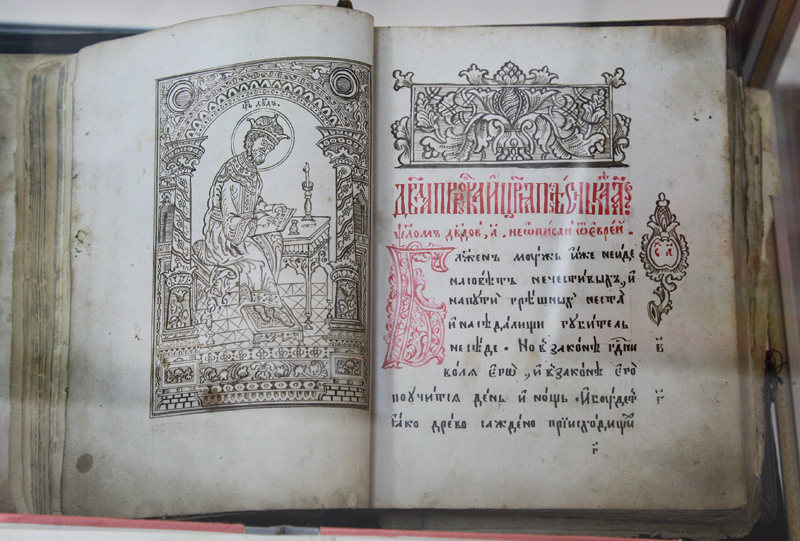 цр҃ь дв҃дъ.
дв҃да прⷪ҇рка и цр҃ѧ пѣснь. а҃
ѱало́мъ дв҃дов, а҃. не ѡписанъ ѿ еврей.
Блаже́нъ мꙋжъ и́же неиде
насовѣтъ нечести́выхъ, и
напꙋти грѣ́шныхъ неста̀
и насѣда́лищи гꙋби́тель
несѣ́де. Но въ зако́нѣ гд҇ни
во́лѧ єгѡ̀, и въ зако́нѣ єго̀
поꙋчи́тсѧ де́нь и но́щь. И бꙋ́детъ
ꙗ҆́ко дре́во сажде́но прїисходищи
с҃л а
в҃
г҃
г҃